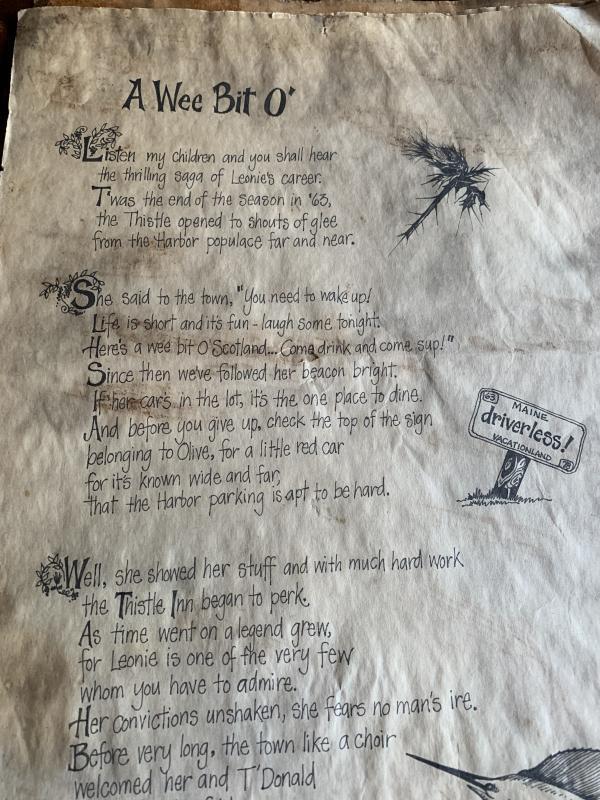 A Wee Bit O'
Listen my children and you shall hear
the thrilling saga of Leonie's career.
T'was the end of the Season in '63,
the Thistle opened to shouts of glee
from the Harbor populace far and near.
She said to the town, "You need to wake up!
Life is short and it's fun - laugh some tonight.
Here's a wee bit O'Scotland... Come drink and come sup!"
Since then we've followed her beacon bright.
If her car's in the lot, it's the one place to dine.
And before you give up, check the top of the sign
belonging to Olive, for a little red car
for it's known wide and far,
that the Harbor parking is apt to be hard.
63
MAINE
driverless!
VACATIONLAND
78
Well, she showed her stuff and with much hard work
the Thistle Inn began to perk.
As time went on a legend grew,
for Leonie is one of the very few
whom you have to admire.
Her convictions unshaken, she fears no man's ire.
Before very long, the town like a choir
welcomed her and T'Donald